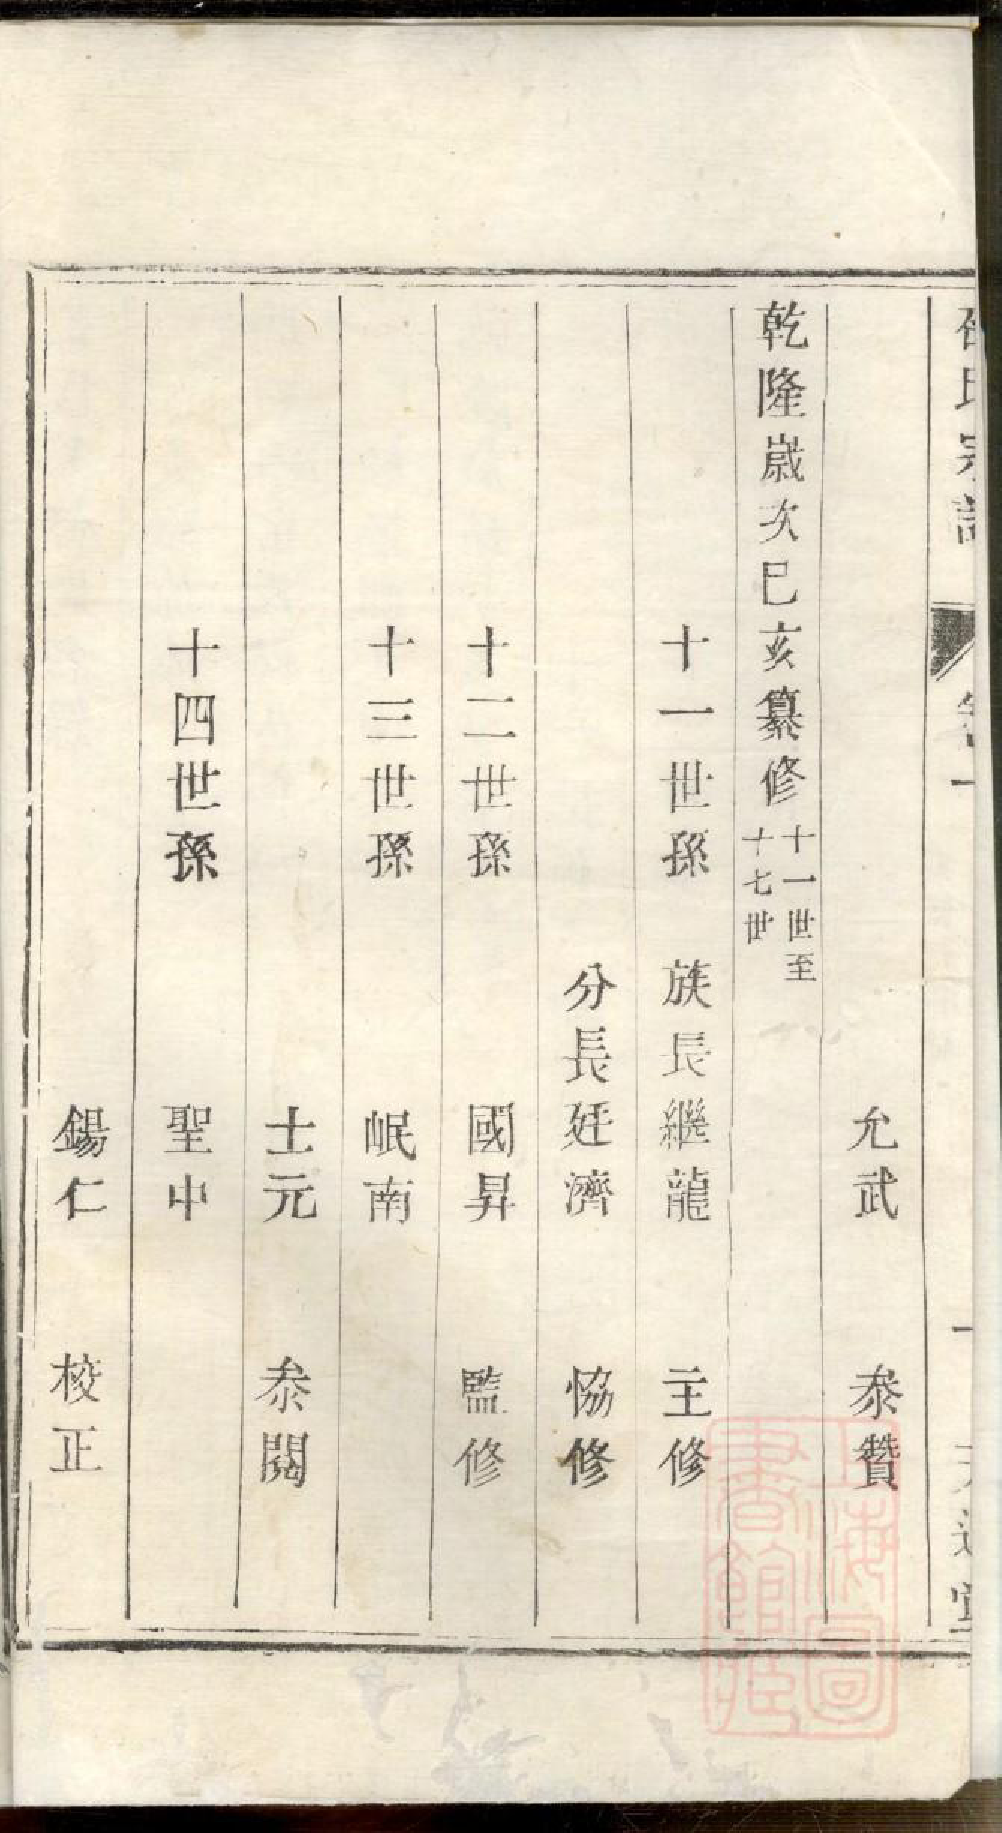 氏宗譜 卷一 一
允武 叅贊
乾隆歲次巳亥纂修 十一世至
十七世
十一世孫 族長繼龍 主修
分長廷濟 恊修
十二世孫 國昇 監修
十三世孫 岷南
士元 叅閱
十四世孫 聖中
錫仁 校正
上海圖
書館藏